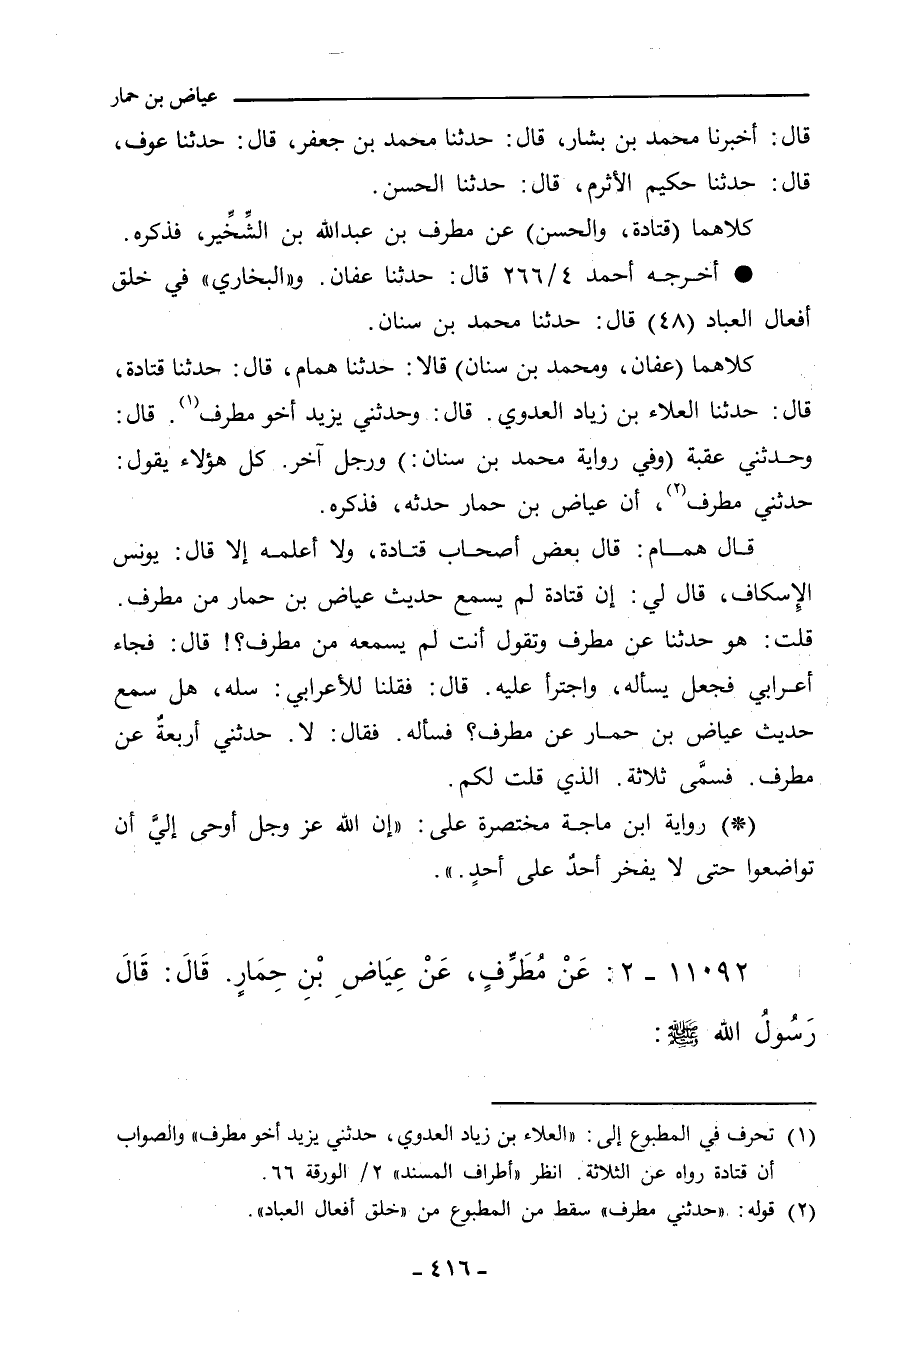 عياض بن حمار
قال: أخبرنا محمد بن بشار، قال: حدثنا محمد بن جعفر، قال: حدثنا عوف،
قال: حدثنا حكيم الأثرم، قال: حدثنا الحسن.
كلاهما (قتادة، والحسن) عن مطرف بن عبدالله بن الشِّخِّير، فذكره.
● أخرجه أحمد ٢٦٦/٤ قال: حدثنا عفان. و«البخاري» في خلق
أفعال العباد (٤٨) قال: حدثنا محمد بن سنان.
كلاهما (عفان، ومحمد بن سنان) قالا: حدثنا همام، قال: حدثنا قتادة،
قال: حدثنا العلاء بن زياد العدوي. قال: وحدثني يزيد أخو مطرف(١). قال:
وحدثني عقبة (وفي رواية محمد بن سنان:) ورجل آخر. كل هؤلاء يقول:
حدثني مطرف(٢)، أن عياض بن حمار حدثه، فذكره.
قال همام: قال بعض أصحاب قتادة، ولا أعلمه إلا قال: يونس
الإسكاف، قال لي: إن قتادة لم يسمع حديث عياض بن حمار من مطرف.
قلت: هو حدثنا عن مطرف وتقول أنت لم يسمعه من مطرف؟! قال: فجاء
أعرابي فجعل يسأله، واجترأ عليه. قال: فقلنا للأعرابي: سله، هل سمع
حديث عياض بن حمار عن مطرف؟ فسأله. فقال: لا. حدثني أربعةٌ عن
مطرف. فسمَّى ثلاثة. الذي قلت لكم.
(*) رواية ابن ماجة مختصرة على: «إن الله عز وجل أوحى إليَّ أن
تواضعوا حتى لا يفخر أحدٌ على أحدٍ.».
١١٠٩٢ - ٢: عَنْ مُطَرِّفٍ، عَنْ عِيَاضِ بْنِ حِمَارٍ. قَالَ: قَالَ
رَسُولُ الله ﷺ:
(١) تحرف في المطبوع إلى: «العلاء بن زياد العدوي، حدثني يزيد أخو مطرف» والصواب
أن قتادة رواه عن الثلاثة. انظر «أطراف المسند» ٢/ الورقة ٦٦.
(٢) قوله: «حدثني مطرف» سقط من المطبوع من «خلق أفعال العباد».
- ٤١٦ -